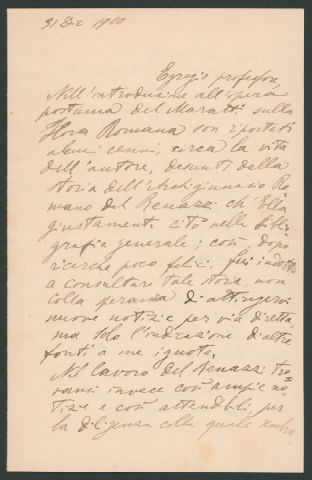 31 Dic 1900
Egregio professore,
Nell'introduzione all'opera
postuma del Maratti sulla
Flora Romana son riportati
alcuni cenni, circa la vita
dell'autore, desunti dalla
storia dell'Archiginnasio Ro-
mano del Renazzi ch'Ella
giustamente citò nella biblio
grafia generale; così dopo
ricerche poco felici fui indotto
a consultare tale storia, non
colla speranza di attingervi
nuove notizie per via diretta,
ma solo l'indicazione di altre
fonti a me ignote.
Nel lavoro del Renazzi tro-
vansi invece così ampie no-
tizie e così attendibili, per
la diligenza colla quale sembra